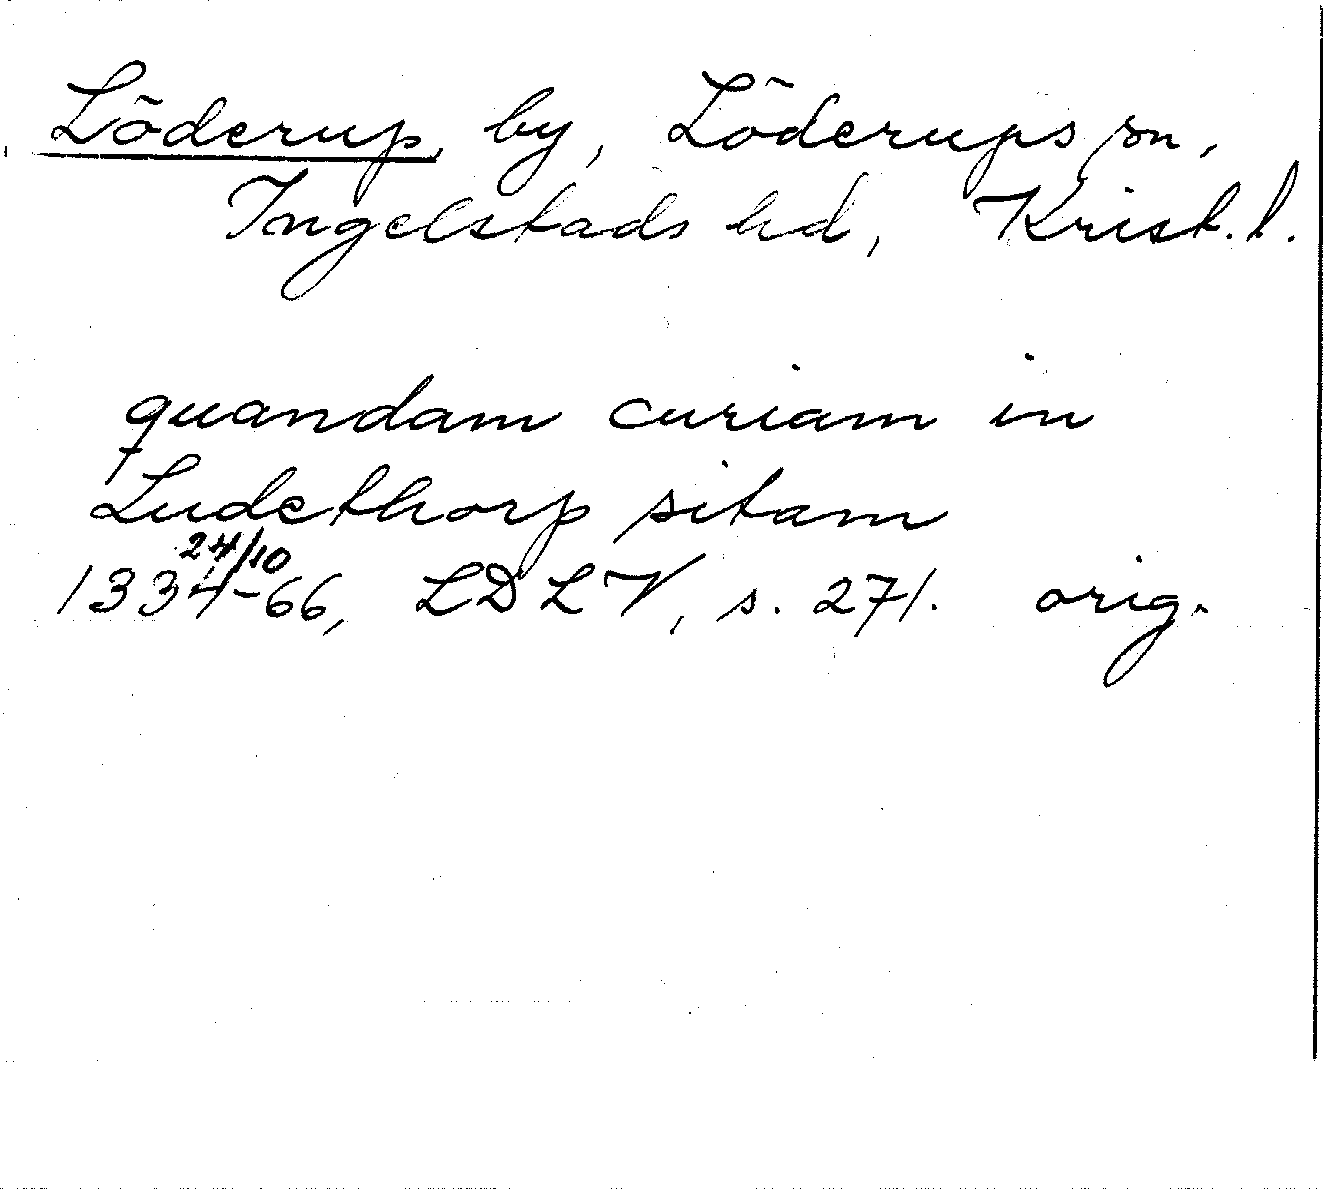 Löderup, by, Löderups sn,
Ingelstads hd, Krist. l.
quandam curiam in
Ludethorp sitam
24/10
1334-66, LDLV, s. 271. orig.